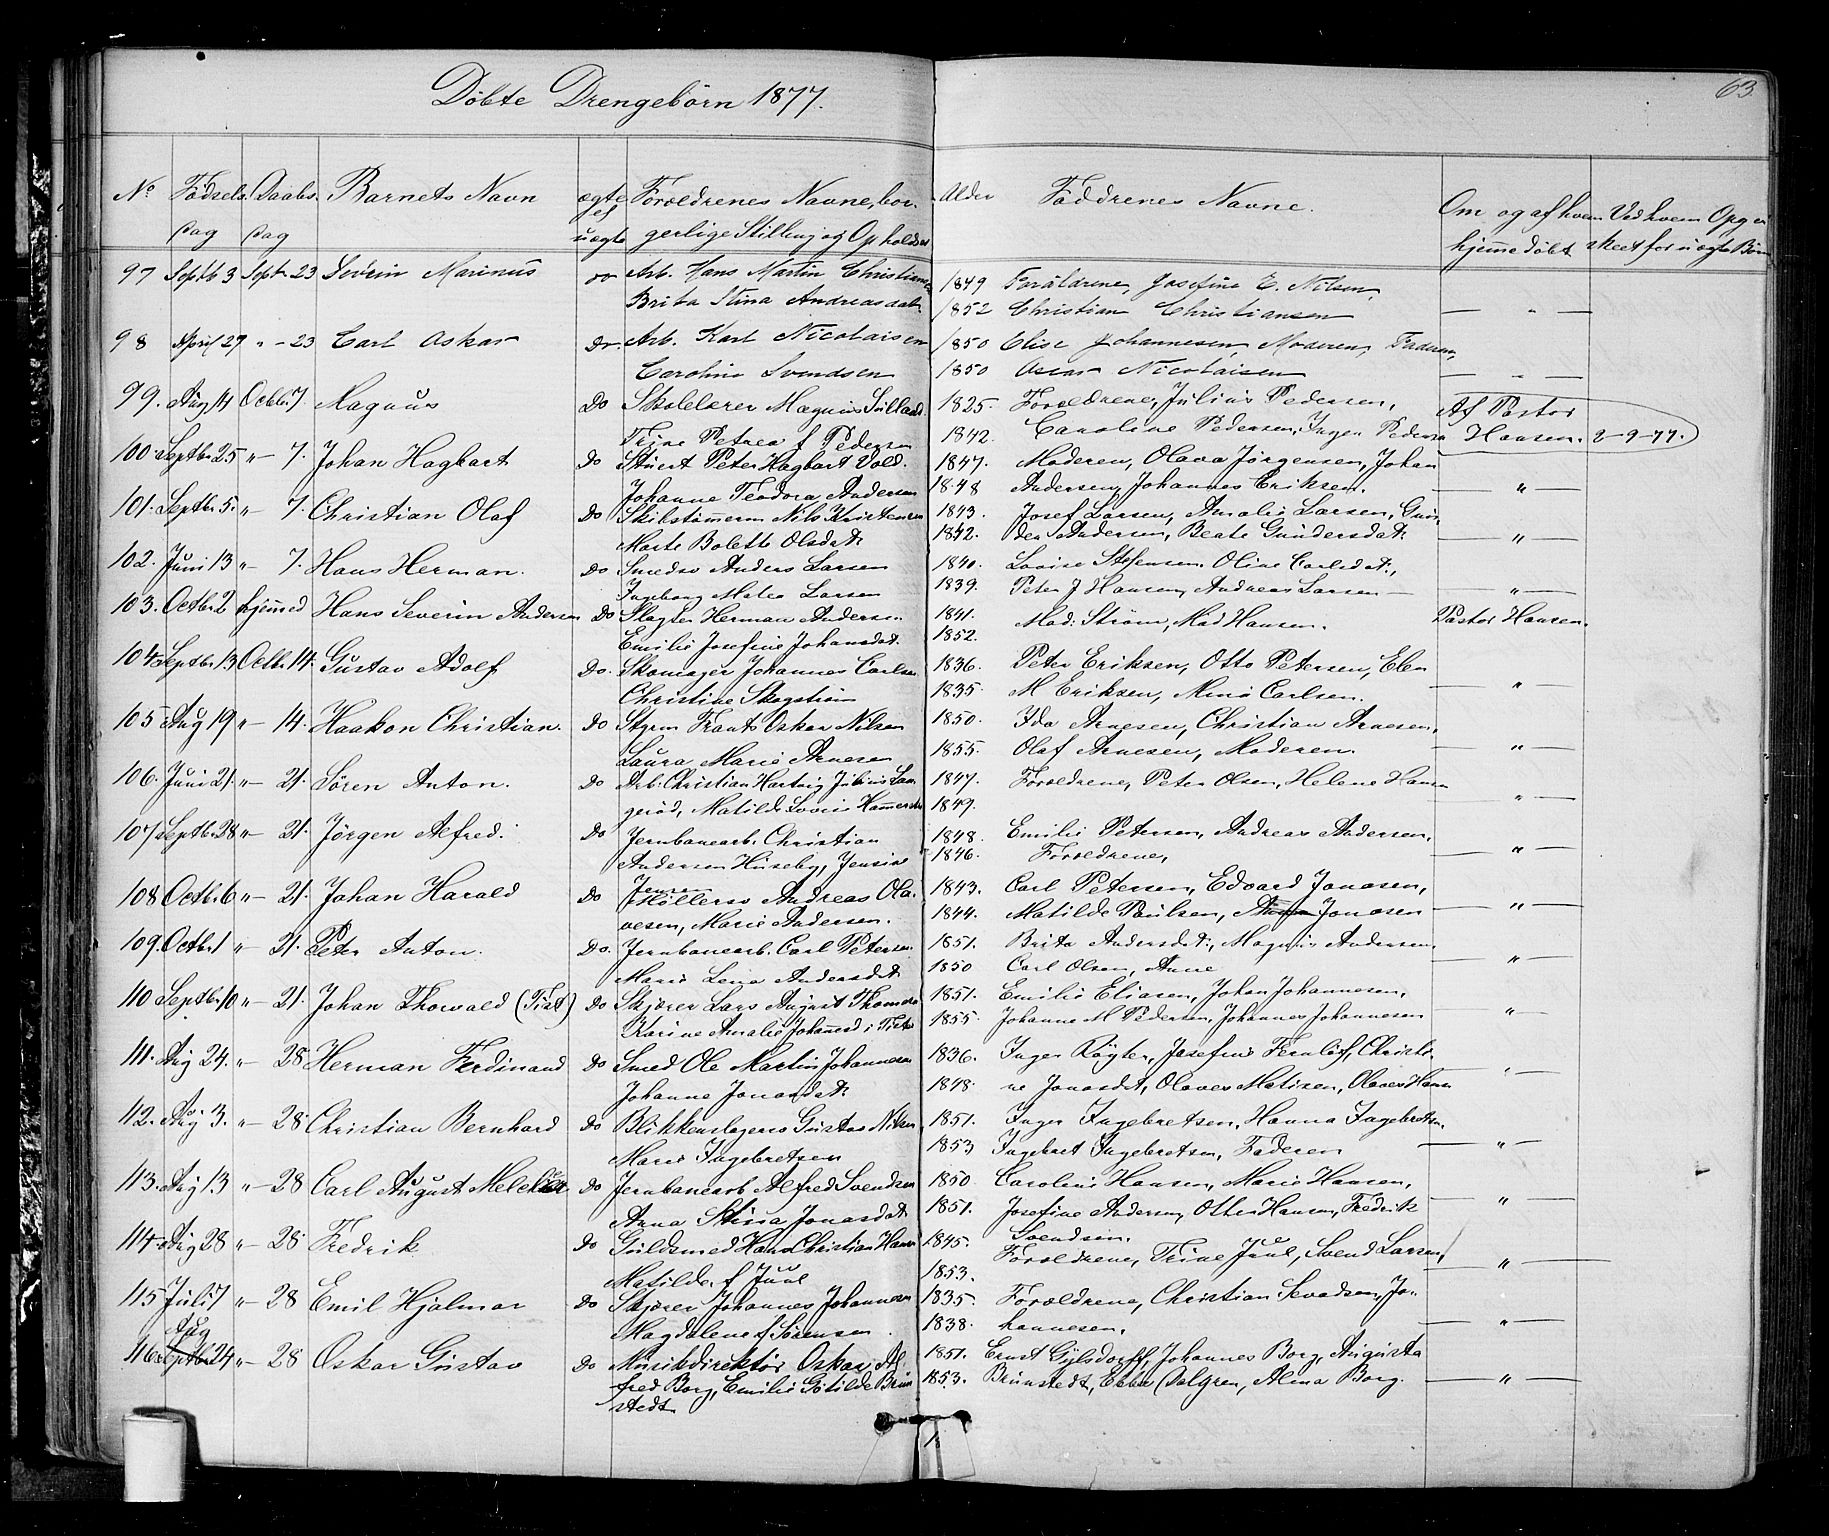 Döbte Drengebörn 1877.
63
No Födsels Daabs Barnets Navn ægte Forældrenes Navne, bor- Alder Faddrenes Navne. Om og af hvem Ved hvem Opg er
dag dag uægte gerlige Stilling og Opholdst hjemme döbt skeet for uægte Börn
97 Septb 3 Septr 23 Severin Marinus Arb. Hans Martin Christiansen 1849 Forældrene, Josefine E. Nilsen,
Brita Stina Andreasdatr 1852 Christian Christiansen — " —
98 April 27 " - 23 Carl Oskar Do. Arb. Karl Nicolaisen 1850 Elise Johannesen, Moderen, Faderen,
Caroline Svendsen 1850 Oscar Nicolaisen — " —
99. Aug 14 Octbr. 7. Magnus Do Skolelærer Magnus Sulland 1825. Forældrene, Julius Pedersen, Af Pastor
Trine Petrea f Pedersen 1842. Caroline Pedersen, Inger Pedersen Hansen. 2-9-77.
100. Septbr 25 "- 7. Johan Hagbart Do Stuert Peter Hagbart Vold. 1847. Moderen, Olava Jörgensen, Johan
Johanne Teodora Andersen 1848 Andersen, Johannes Eriksen. — " —
101. Septbr. 5. "- 7. Christian Olaf Do Skibstömmerm Nils Kristensen 1843. Josef Larsen, Amalie Larsen, Gun-
Marte Bolette Olsdatr 1842. der Andersen, Beate Gundersdatr — " —
102. Juni 13 "- 7. Hans Herman. Do Smedsv Anders Larsen 1840. Lovise Stefensen. Oline Carlsdatr,
Ingeborg Matea Larsen 1839. Peter J Hansen, Andreas Larsen — — " —
103. Octbr 2 hjemmed Hans Severin Andersen Do Slagter Herman Andersen 1841. Mad: Ström, Mad Hansen. Pastor Hansen.
Emilie Josefine Johansdatr 1852.
104. Septbr. 13 Octbr. 14. Gustav Adolf Do. Skomager Johannes Carlsen 1836. Peter Eriksen, Otto Petersen, Elen
Christine Skogström 1835. M Eriksen, Mina Carlsen. — " —
105 Aug 19 "- 14. Haakon Christian. Do Styrm Frants Oskar Nilsen 1850. Ida Arnesen, Christian Arnesen,
Laura Marie Arnesen 1855. Olaf Arnesen, Moderen. — " —
106. Juni 21. "- 21. Sören Anton. Do Arb. Christian Hartvig Julius Lan- 1847. Forældrene, Peter Olsen, Helene Hansen
geröd, Matilde Lovise Hammerstad 1849. — " —
107 Septbr 28 "- 21. Jörgen Alfred. Do Jernbanearb. Christian 1848. Emilie Petersen, Andreas Andersen,
Andersen Huseby, Jensine 1846. Forældrene, — " —
Jensen
108 Octbr. 6 "- 21. Johan Harald Do Möllersv Andreas Ola- 1843. Carl Petersen, Edvard Jonasen,
vesen, Marie Andersen. 1844. Matilde Paulsen, Jonasen — " —
109. Octbr. 1 "- 21. Peter Anton. Do. Jernbanearb. Carl Petersen 1851. Brita Andersdatr., Magnus Andersen.
Marie Lena Andersdat 1850 Carl Olsen, Anne — " —
110 Septbr. 10 "- 21. Johan Thorvald (Tist) Do Skjærer Lars August Thomesen 1851. Emilie Eliasen, Johan Johannesen,
Karine Amalie Johannesd i Tiste 1855. Johanne M Pedersen, Johannes Johannesen — " —
111. Aug 24. "- 28 Herman Ferdinand Do Smed Ole Martin Johannesen 1836. Inger Rögter, Josefine Fernlöf, Christi-
Johanne Jonasdatr 1848. ne Jonasdat, Olaves Matisen, Olaves Hansen — " —
112. Aug. 3. "- 28 Christian Bernhard Do Blikkenslagersv Gustav Nilsen 1851. Inger Ingebretsen, Hanna Ingebretsen
Marie Ingebretsen 1853 Ingebret Ingebretsen, Faderen — " —
113. Aug 13 "- 28 Carl August Melchior Do Jernbanearb Alfred Svendsen 1850. Caroline Hansen, Marie Hansen,
Anna Stina Jonasdat 1851. Josefine Andersen, Otter Hansen, Fredrik — " —
Svendsen.
114. Aug 28 "- 28 Fredrik Do Guldsmed Hans Christian Hansen 1845. Forældrene, Trine Juul, Svend Larsen,
Matilde f Juul 1853. — " —
115 Juli 7 "- 28 Emil Hjalmar Do Skjærer Johannes Johannesen 1835. Forældrene, Christian Sevadsen, Jo-
Magdalene f Sörensen. 1838. hannesen. — " —
Aug
116. Septbr 24 "- 28 Oskar Gustav Do Musikdirektör Oskar Al- 1851. Ernst Gylsdorff, Johannes Borg, Augusta
fred Borg, Emilie Gotilde Brun 1853. Brunstedt, Ebba Dalgren, Alma Borg. — " —
stedt